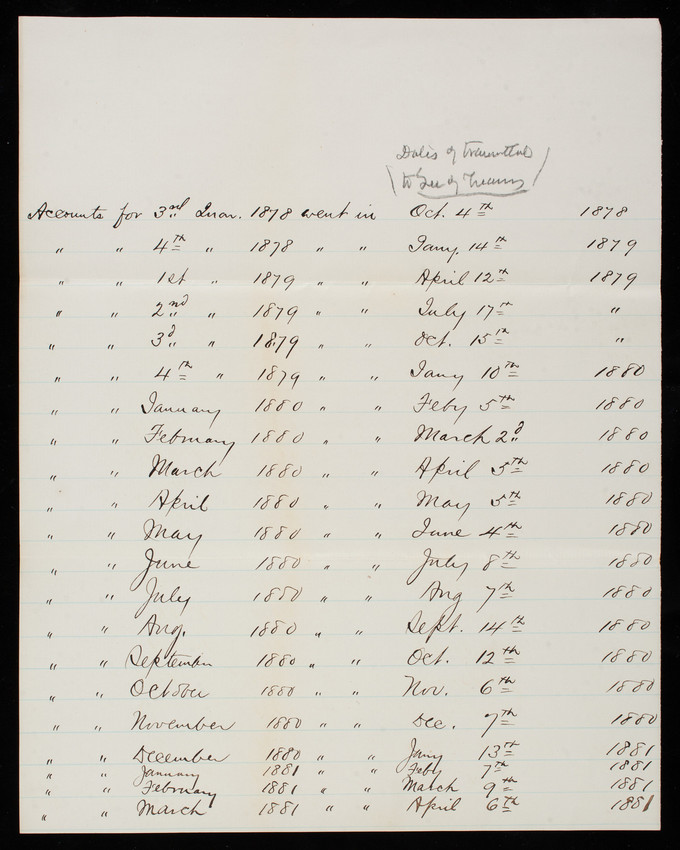 Dates of transmittal
(to Sec of Treasury)
Accounts for 3rd Quar. 1878 went in Oct. 4th 1878
" " 4th " 1878 " " Jany. 14th 1879
" " 1st " 1879 " " April 12th 1879
" " 2nd " 1879 " " July 17th "
" " 3d " 1879 " " Oct. 15th "
" " 4th " 1879 " " Jany 10th 1880
" " January 1880 " " Feby 5th 1880
" " February 1880 " " March 2d 1880
" " March 1880 " " April 5th 1880
" " April 1880 " " May 5th 1880
" " May 1880 " " June 4th 1880
" " June 1880 " " July 8th 1880
" " July 1880 " " Aug 7th 1880
" " Aug. 1880 " " Sept. 14th 1880
" " September 1880 " " Oct. 12th 1880
" " October 1880 " " Nov. 6th 1880
" " November 1880 " " Dec. 7th 1880
" " December 1880 " " Jany 13th 1881
" " January 1881 " " Feby 7th 1881
" " February 1881 " " March 9th 1881
" " March 1881 " " April 6th 1881